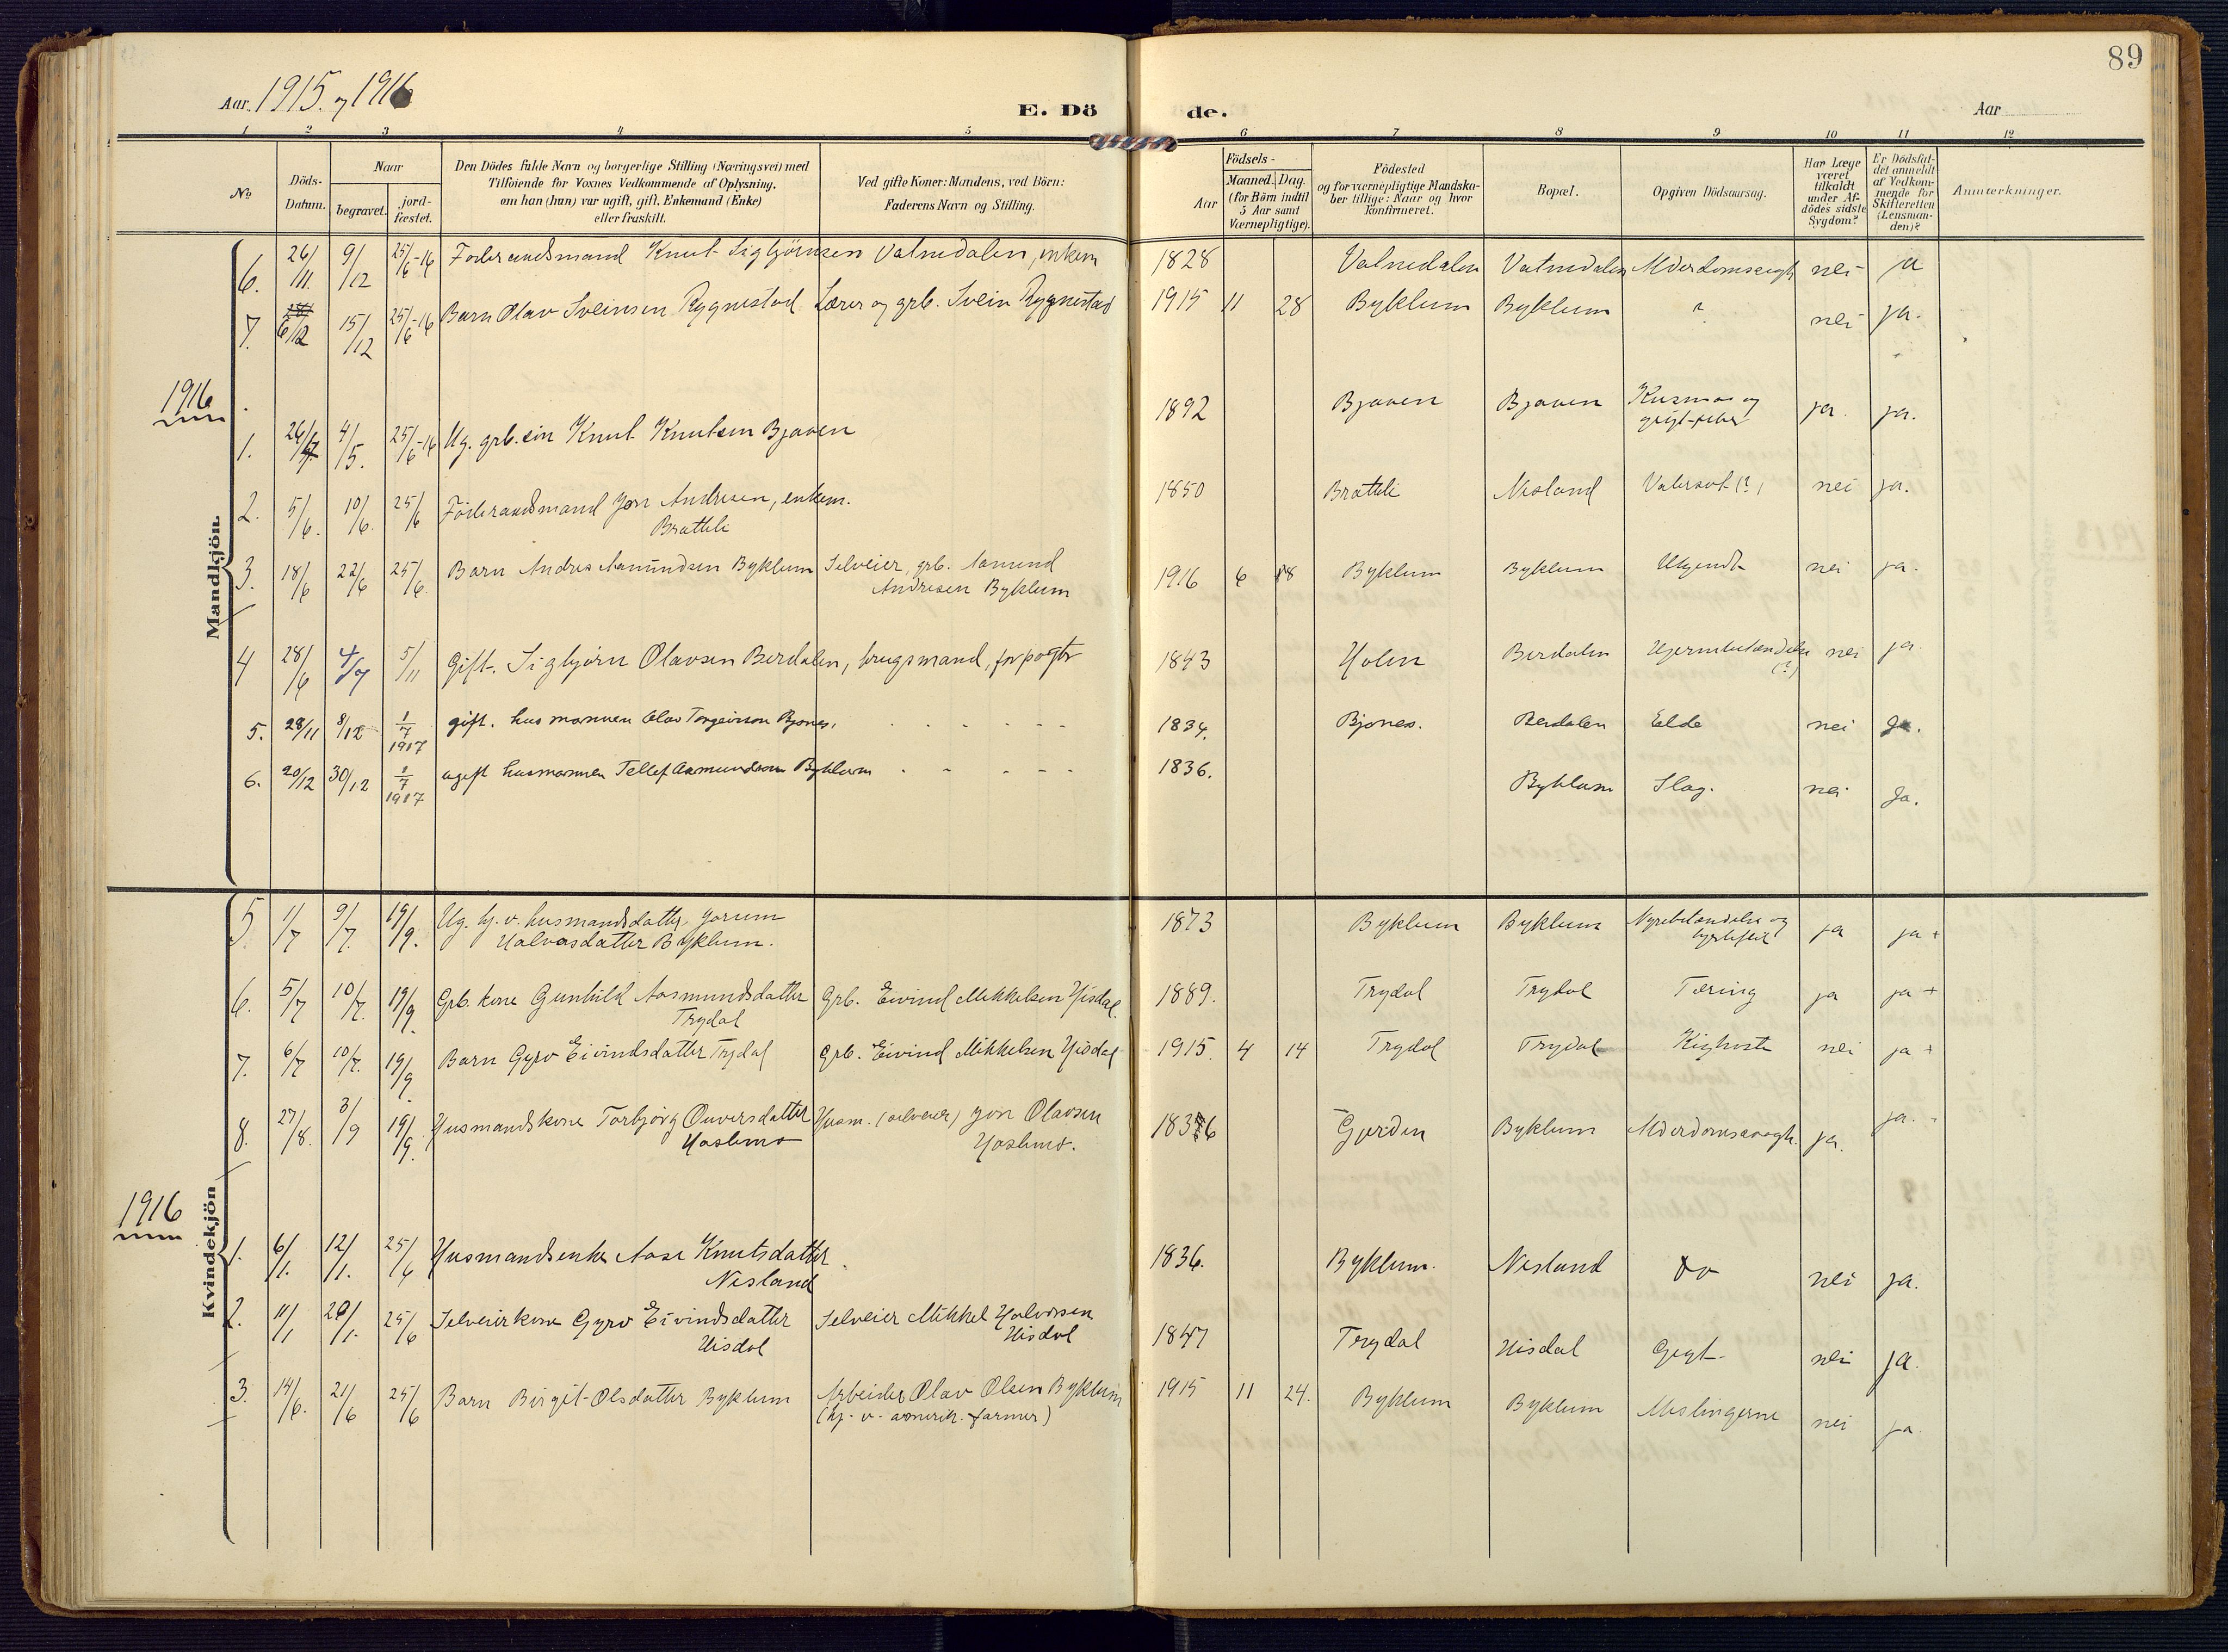 89
Aar. 1915. og 1916
E. Dö de.
Aar
1 2 3 4 5 6 7 8 9 10 11 12
No
Döds-
Datum.
Naar
begravet.
jord-
fæstet.
Den Dödes fulde Navn og borgerlige Stilling (Næringsvei) med
Tilföiende for Voxnes Vedkommende af Oplysning,
om han (hun) var ugift, gift, Enkemand (Enke)
eller fraskilt.
Ved gifte Koner: Mandens, ved Börn:
Faderens Navn og Stilling.
Födsels-
Aar
Maaned. Dag.
(for Börn indtil
5 Aar samt
Værnepligtige).
Födested
og for værnepligtige Mandska-
ber tillige: Naar og hvor
konfirmeret.
Bopæl.
Opgiven Dödsaarsag.
Har Læge
været
tilkaldt
under Af-
dödes sidste
Sygdom?
Er Dödsfal-
det anmeldt
af Vedkom-
mende for
Skifteretten
(Lensman-
den)?
Anmærkninger.
Mandkjön.
6. 26/11. 9/12 25/6-16 Föderaadsmand Knut Sigbjörnsen Vatnedalen, enkem 1828 Vatnedalen Vatnedalen Alderdomssvagh nei ja
7. 6/12 15/12 25/6-16 Barn Olav Sveinsen Rygnestad Lærer og grb. Svein Rygnestad 1915 11 28 Byklum Byklum ? nei ja.
1916
1. 26/4 4/5. 25/6-16 Ug. grb.søn Knut Knutsen Bjaaen 1892 Bjaaen Bjaaen og
gigt-feber ja. ja.
2. 5/6. 10/6. 25/6 Föderaadsmand Jon Andresen, enkem.
Brattli 1850 Brattli Nesland Vatersot (?) nei ja.
3. 18/6 22/6 25/6. Barn Andres Aamundsen Byklum Selveier, grb. Aamund
Andresen Byklum 1916 6 18 Byklum Byklum Ukjendt nei ja.
4 28/6 4/7 5/11 Gift. Sigbjörn Olavsen Berdalen, brugsmand, forpagter 1843 Holen Berdalen Hjernebetændelse
(?) nei ja.
5. 28/11 8/12 1/7 1917 gift. husmannen Olav Torgeirson Bjones. 1834. Bjones. Berdalen Elde nei Ja.
6. 20/12 30/12 1/7 1917 ugift husmannen Tellef Aamundson Byklum 1836. Byklum Slag. nei Ja.
Kvindekjön
5 1/7 9/7. 19/9. Ug. hj. v. husmandsdatter Jorunn
Halvorsdatter Byklum. 1873 Byklum Byklum Nyrebetændelse og
hjertefeil ja ja +
6. 5/7 10/7. 19/9. Grb. kone Gunhild Aasmundsdatter
Trydal Grb. Eivind Mikkelsen Hisdal 1889. Trydal Trydal Tæring ja ja +
7. 6/7 10/7. 19/9. Barn Gyro Eivindsdatter Trydal Grb. Eivind Mikkelsen Hisdal 1915. 4 14 Trydal Trydal Kighoste nei ja +
8. 27/8. 3/9 19/9. Husmandskone Torbjörg Ouversdatter
Hoslemo Husm. (selveier) Jon Olavsen
Hoslemo. 1836 Gjerden Byklum Alderdomssvagh. ja. ja.
1916
1. 6/1. 12/1. 25/6 Husmandsenke Aase Knutsdatter
Nesland 1836. Byklum. Nesland do nei ja.
2. 11/1 20/1. 25/6 Selveierkone Gyro Eivindsdatter
Hisdal Selveier Mikkel Halvorsen
Hisdal 1847 Trydal Hisdal Gigt- nei ja.
3. 14/6. 21/6 25/6 Barn Birgit Olsdatter Byklum Arbeider Olav Olsen Byklum
(hj. v. amerik. farmer) 1915 11 24. Byklum Byklum Meslingerne nei ja